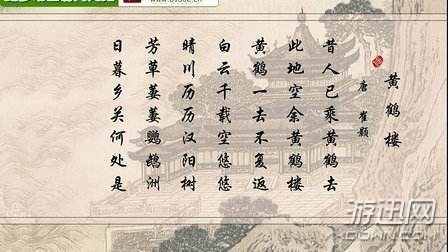 黄鹤楼
唐 崔颢
昔人已乘黄鹤去
此地空余黄鹤楼
黄鹤一去不复返
白云千载空悠悠
晴川历历汉阳树
芳草萋萋鹦鹉洲
日暮乡关何处是
游迅网